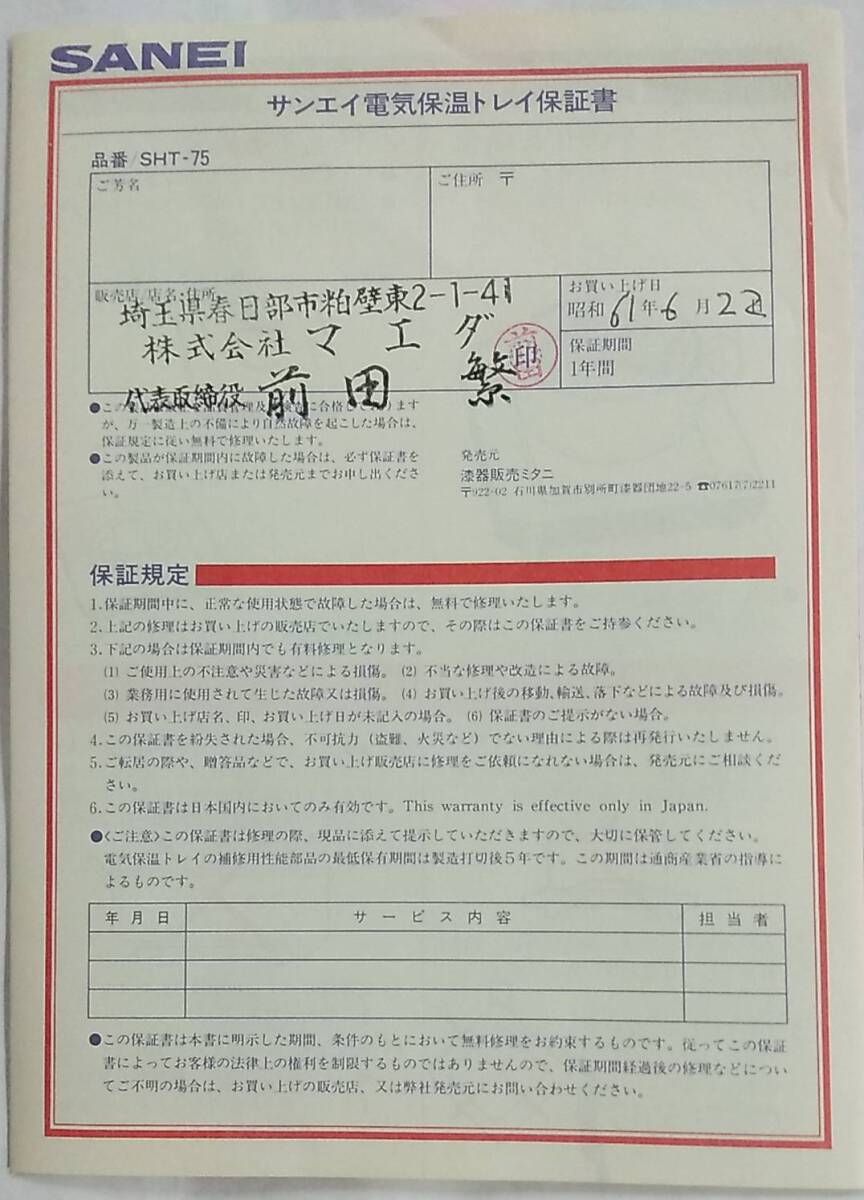 SANEI
サンエイ電気保温トレイ保証書
品番/SHT-75
ご芳名
ご住所 〒
販売店/店名・住所
埼玉県春日部市粕壁東2-1-41
株式会社マエダ
代表取締役 前田 繁
印
お買い上げ日
昭和61年6月22日
保証期間
1年間
●この製品は厳密な品質管理及び検査に合格しておりますが、万一製造上の不備により自然故障を起こした場合は、
保証規定に従い無料で修理いたします。
●この製品が保証期間内に故障した場合は、必ず保証書を
添えて、お買い上げ店または発売元までお申し出くださ
い。
発売元
漆器販売ミタニ
〒922-02 石川県加賀市別所町漆器団地22-5 ☎07617(7)2211
保証規定
1.保証期間中に、正常な使用状態で故障した場合は、無料で修理いたします。
2.上記の修理はお買い上げの販売店でいたしますので、その際はこの保証書をご持参ください。
3.下記の場合は保証期間内でも有料修理となります。
(1) ご使用上の不注意や災害などによる損傷。(2) 不当な修理や改造による故障。
(3) 業務用に使用されて生じた故障又は損傷。(4) お買い上げ後の移動、輸送、落下などによる故障及び損傷。
(5) お買い上げ店名、印、お買い上げ日が未記入の場合。(6) 保証書のご提示がない場合。
4.この保証書を紛失された場合、不可抗力（盗難、火災など）でない理由による際は再発行いたしません。
5.ご転居の際や、贈答品などで、お買い上げ販売店に修理をご依頼になれない場合は、発売元にご相談くだ
さい。
6.この保証書は日本国内においてのみ有効です。This warranty is effective only in Japan.
●〈ご注意〉この保証書は修理の際、現品に添えて提示していただきますので、大切に保管してください。
電気保温トレイの補修用性能部品の最低保有期間は製造打切後5年です。この期間は通商産業省の指導に
よるものです。
年月日 サービス内容 担当者
●この保証書は本書に明示した期間、条件のもとにおいて無料修理をお約束するものです。従ってこの保証
書によってお客様の法律上の権利を制限するものではありませんので、保証期間経過後の修理などについ
てご不明の場合は、お買い上げの販売店、又は弊社発売元にお問い合わせください。